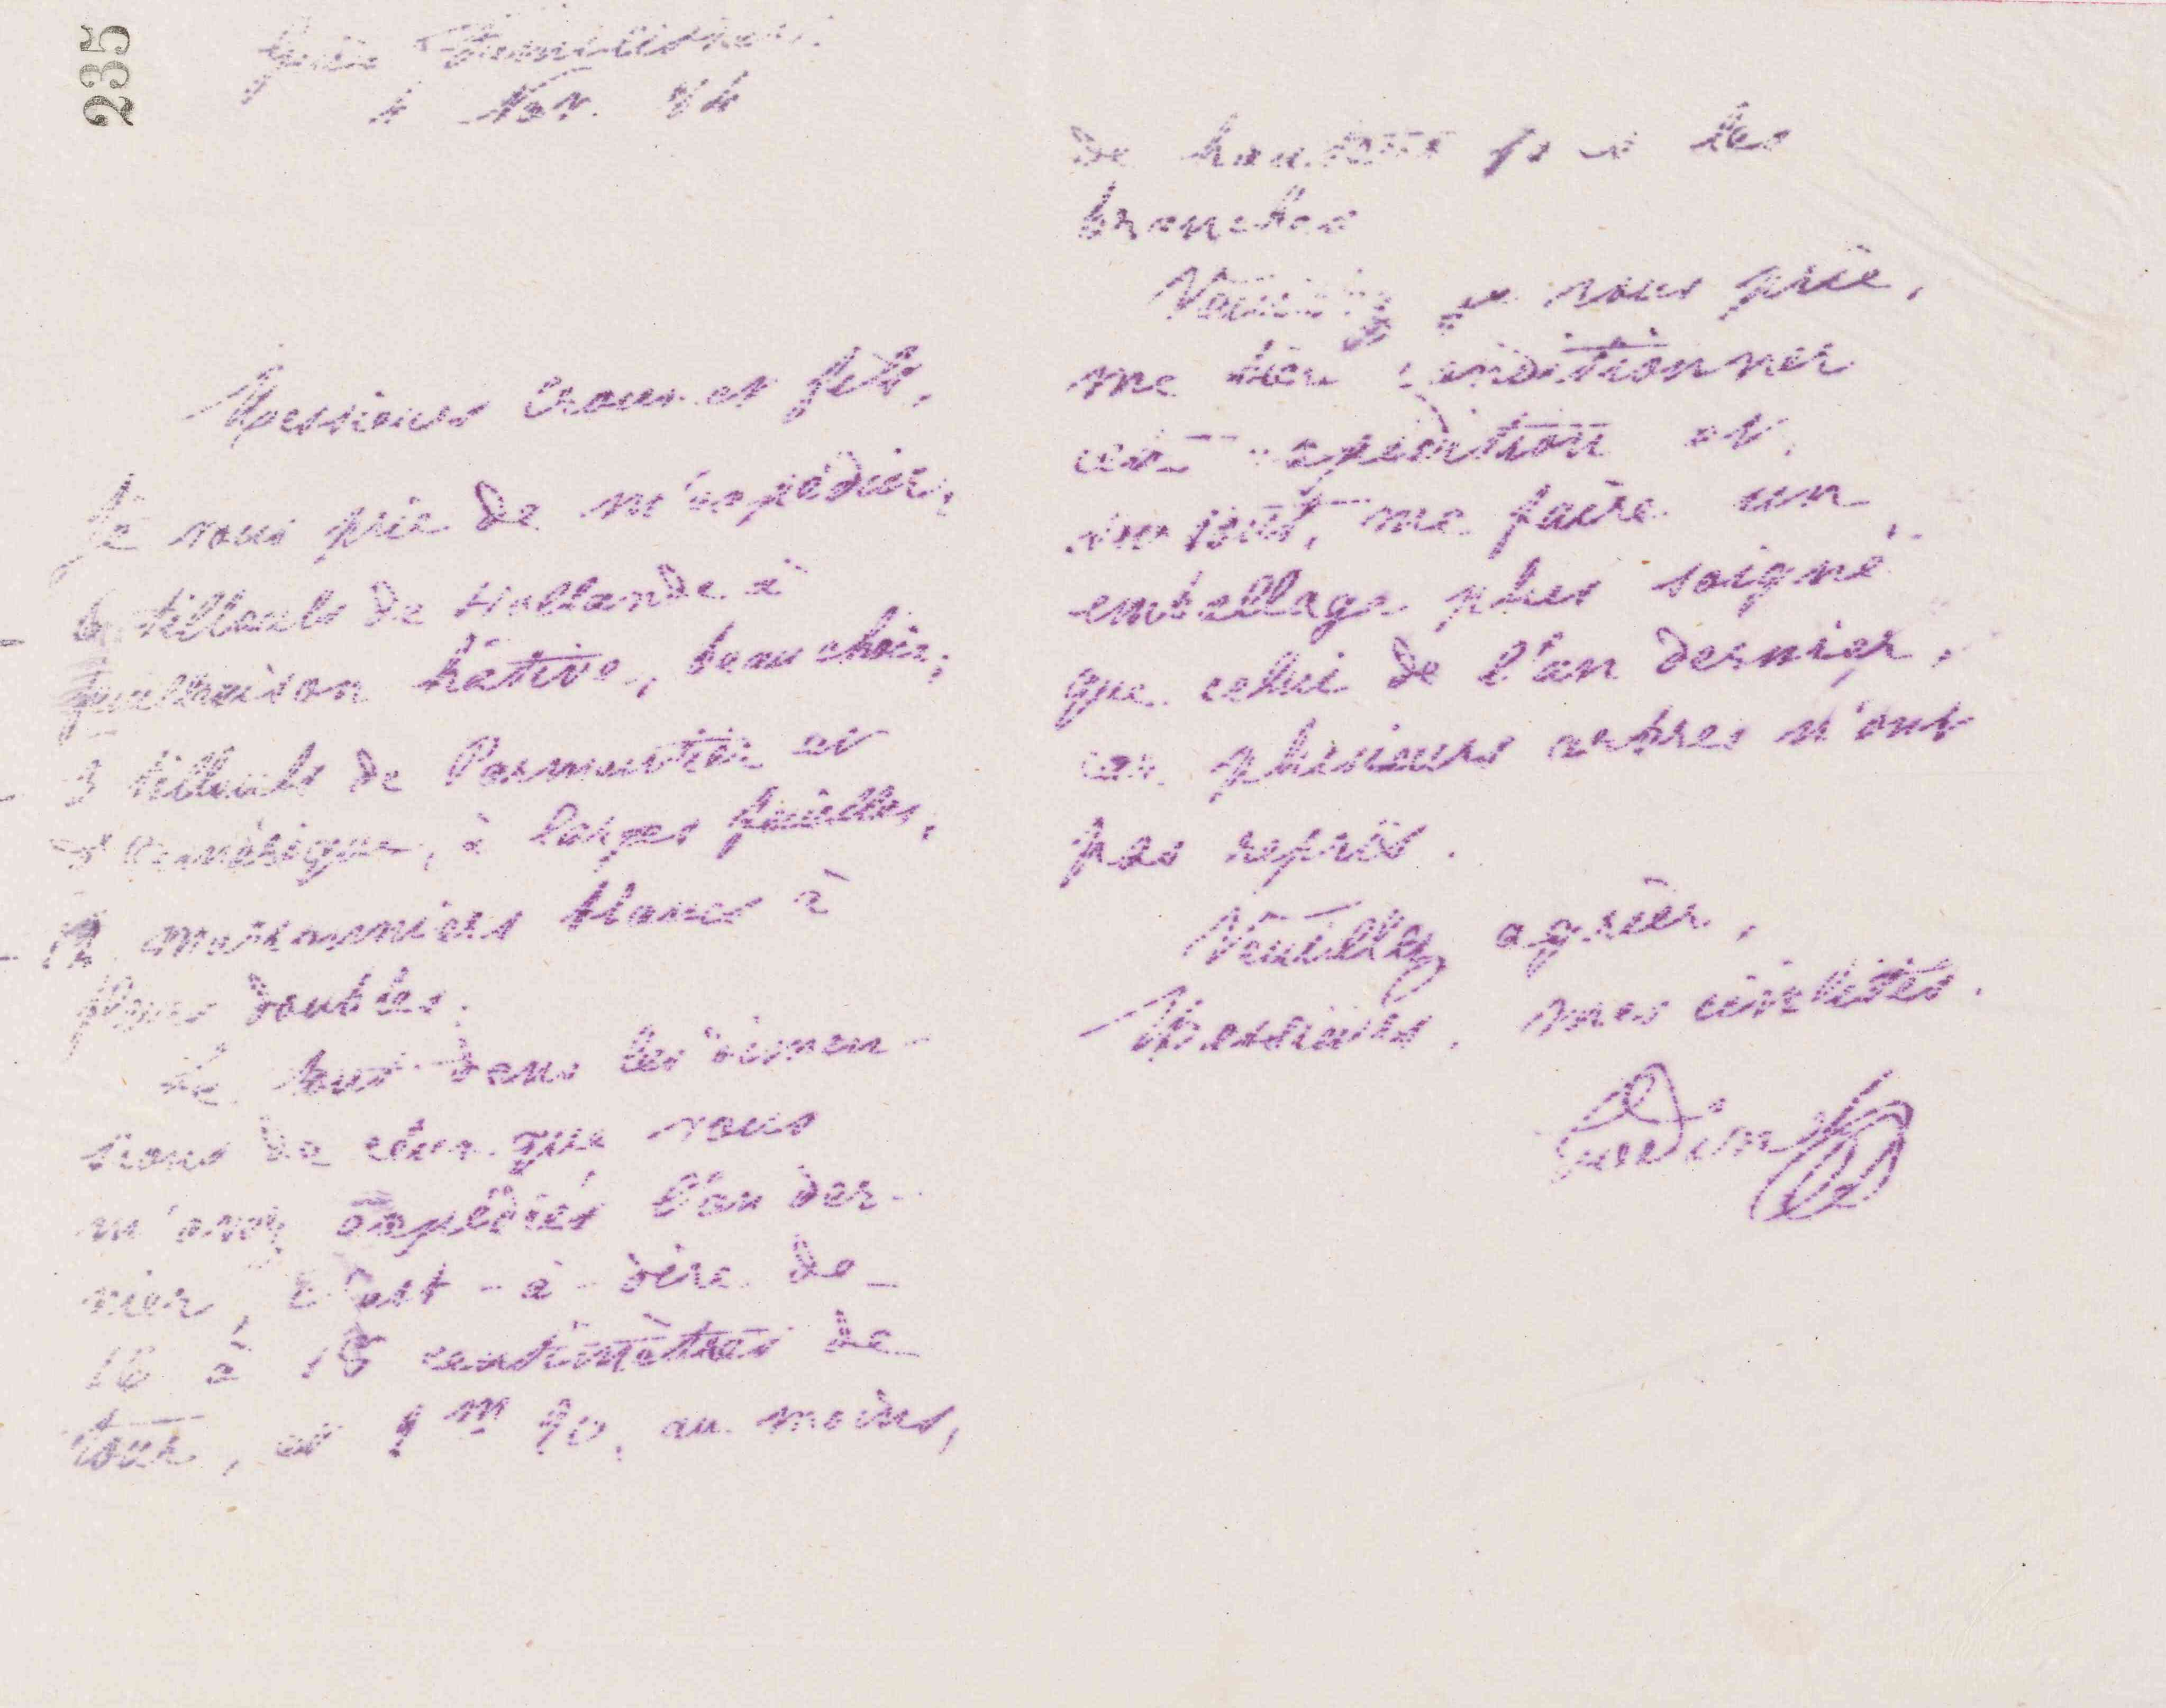 235
Guise Familistère
4 Nov. 84
Messieurs Croux et fils,
Je vous prie de m'expédier,
6 tilleuls de Hollande à
feuillaison hâtive, beau choix,
3 tilleuls de Parmentier et
d'Amérique, à larges feuilles,
12 marronniers blancs à
fleurs doubles.
Le tout dans les dimen-
sions de ceux que vous
m'avez expédiés l'an der-
nier, c'est-à-dire de
16 à 18 centimètres de
tour, et 2m 90, au moins,
de hauteur sous les
branches
Veuillez je vous prie,
me bien conditionner
cette expédition et,
surtout, me faire un
emballage plus soigné
que celui de l'an dernier,
car plusieurs arbres n'ont
pas repris.
Veuillez agréer,
Messieurs, mes civilités.
Godin